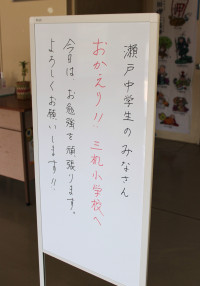 瀬戸中学生のみなさん
おかえり!! 三机小学校へ
今日は、お勉強を頑張ります。
よろしくお願いします!!